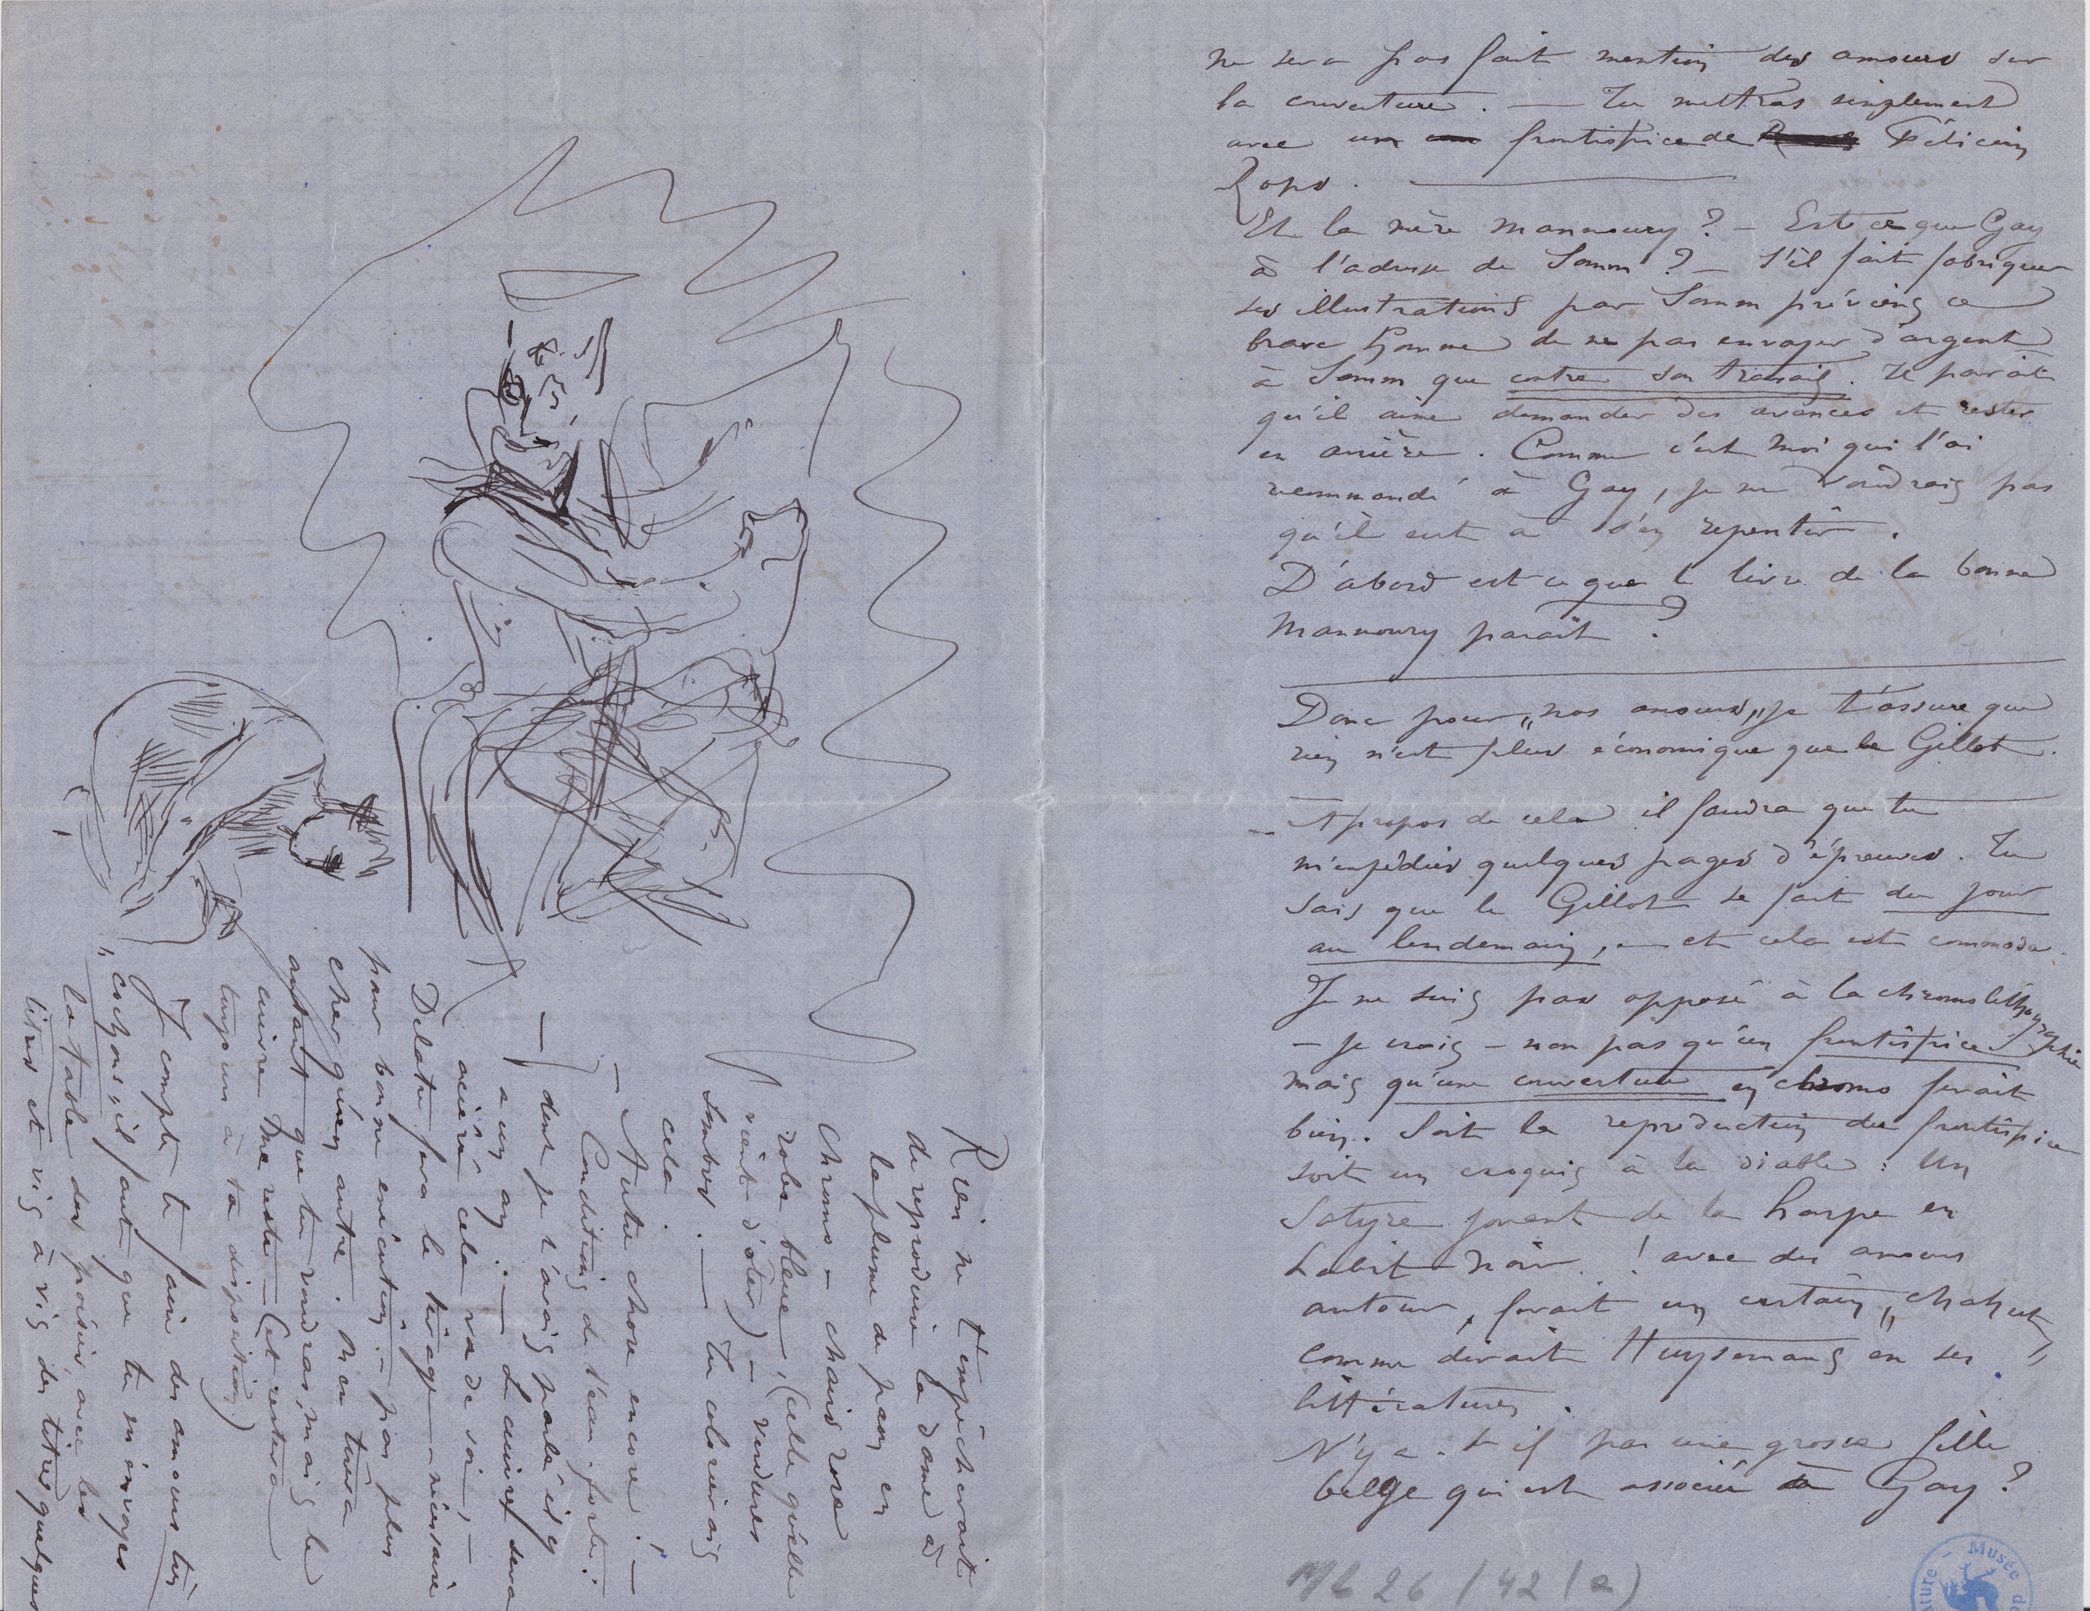 ne sera pas fait mention des amours sur
la couverture. — Tu mettras simplement
avec un frontispice de Félicien
Rops.
Et la mère Mannoury ? – Est ce que Gay
a l'adresse de Somm ? – S'il fait fabriquer
ses illustrations par Somm préviens ce
brave homme de ne pas envoyer d'argent
à Somm que contre son travail. Il parait
qu'il aime demander des avances et rester
en arrière. Comme c'est moi qui l'ai
recommandé à Gay, je ne voudrais pas
qu'il eut à s'en repentir.
D'abord est ce que le livre de la bonne
Mannoury parait ?
Donc pour „nos amours„ je t'assure que
rien n'est plus économique que le Gillot.
– Apropos de cela il faudra que tu
m'expédies quelques pages d'épreuves. Tu
sais que le Gillot se fait du jour
au lendemain, — et cela est commode.
Je ne suis pas opposé à la chromolithographie
– je crois – non pas qu'un frontispice
mais qu'une couverture en chromo ferait
bien. Soit la reproduction du frontispice
soit un croquis à la diable : Un
Satyre jouant de la harpe en
habit noir ! avec des amours
autour, ferait un certain „chahut„
comme dirait Huysmans en ses
littératures.
N'y a-t-il pas une grosse fille
belge qui est associée à Gay ?
ML 26 / 42 (2)
Musée de
Rien ne t'empêcherait
de reproduire la dame à
la plume de paon en
chromo – chairs rose
robe bleue, (celle qu'elle
vient d'ôter) – verdures
sombres. — Tu colorierais
cela.
— Autre chose encore : —
Conditions de l'eau-forte :
— dont je t'avais parlé il y
a un an : — Le cuivre sera
aciéré cela va de soi, —
Delatre fera le tirage – nécessaire
pour bonne exécution. – pas plus
cher qu'un autre. Men tirera
autant que tu voudras, mais le
cuivre me reste – (et restera
toujours à ta disposition)
Je compte te faire des amours très
„cochons„, il faut que tu m'envoyes
la table des poésies, avec les
titres et vis à vis des titres quelques